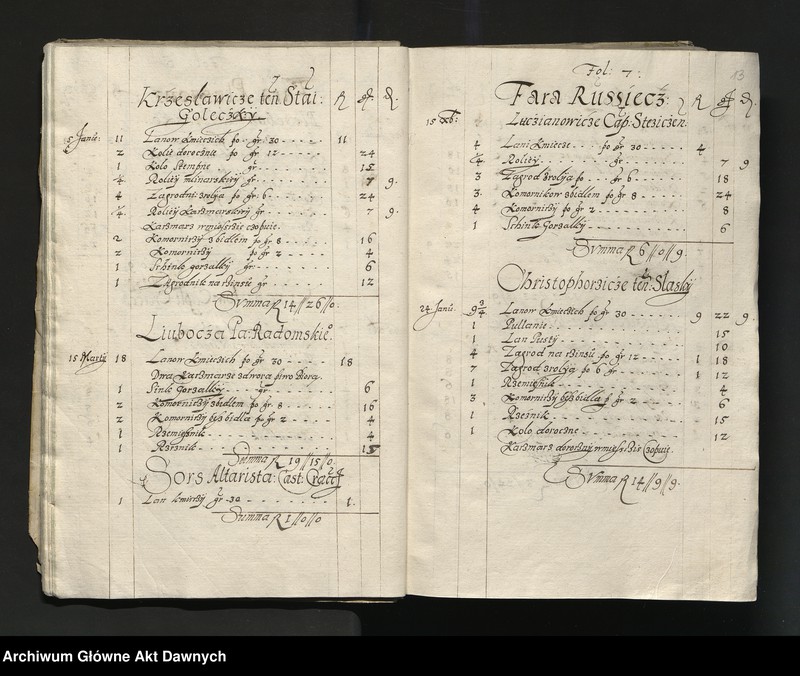 Krzesławicze ten: Stal:
Goleczky
R gr d.
15 Janu: 11 Lanow kmieczich po gr 30 11
2 Kolie dorocznie po gr 12 24
1 Kolo Stempne gr 15
1/4 Roliey mlinarskiey gr 7 9.
4 Zagrodni: z rolya po gr 6 24
1/4 Roliey Karzmarskiey gr 7 9.
Karzmarz w miesczie czopuie.
2 Komorniky z bidlem po gr 8 16
2 Komorniky po gr 2 4
1 Schinko gorzalky gr 6
1 Zagrodnik na czinsie gr 12
Summa R 14 // 26 // 0.
Liubocza Pa: Radomskie°
15 Marty 18 Lanow kmieczich po gr 30 18
Dwa Karzmarze z dwora piwo biora
1 Sinko Gorzalky gr 6
2 Komorniky z bidlem po gr 8 16
2 Komorniky bez bidla po gr 2 4
1 Rzemiesnik 4
1 Rzeznik 15
Summa R 19 // 15 // 0.
Sors Altarista: Cast: Craco:
1 Lan kmieczy gr 30 1.
Summa R 1 // 0 // 0
Fol: 7:
13
Fara Russiecz:
R gr d.
15 Xb: Luczianowicze Cap: Steziczen:
4 Lani kmiecze po gr 30 4
1/4 Roliey gr 7 9
3 Zagrod z rolya po gr 6 18
3 Komornikow z bidlem po gr 8 24
4 Komorniky po gr 2 8
1 Schinko Gorzalky 6
Summa R 6 // 0 // 9.
Christophorzicze ten: Slasky
24 Janu: 9 3/4 Lanow kmieczich po gr 30 9 22 9
1 Pullanie 15
1 Lan Pusty 10
4 Zagrod na czinsu po gr 12 1 18
7 Zagrod z rolya po gr 6 1 12
1 Rzemiesnik 4
3 Komorniky bez bidla po gr 2 6
1 Rzeznik 15
1 Kolo doroczne 12
Karzmarz doroczny w miesczie czopuie
Summa R 14 // 9 // 9.
Archiwum Główne Akt Dawnych